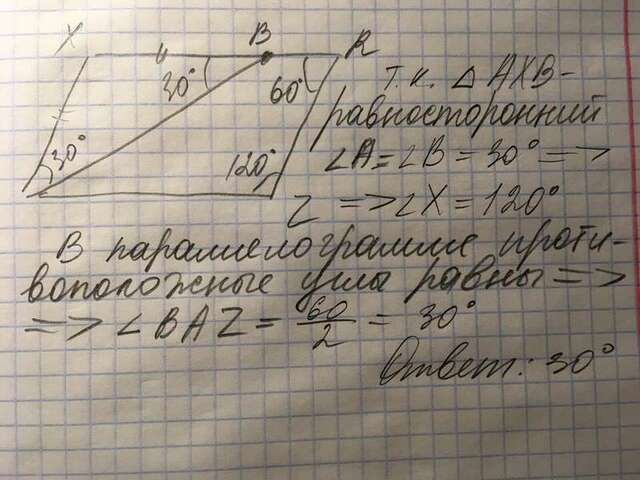 X B R
30° 60°
30° 120°
Z
т.к. △ AXB-
равносторонний
∠A = ∠B = 30° =>
=> ∠X = 120°
В параллелограмме проти-
воположные углы равны =>
=> ∠BAZ = 60/2 = 30°
Ответ: 30°